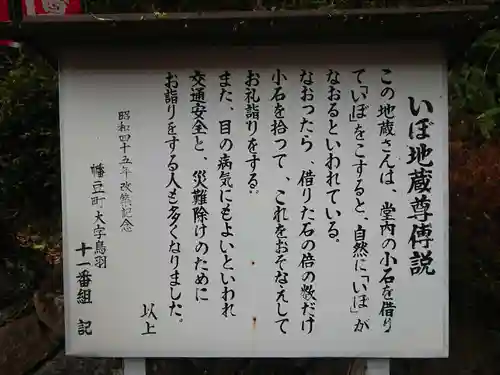 いぼ地蔵尊傳説
この地蔵さんは、堂内の小石を借り
て「いぼ」をこすると、自然に「いぼ」が
なおるといわれている。
なおったら、借りた石の倍の数だけ
小石を拾って、これをおそなえして
お礼詣りをする。
また、目の病気にもよいといわれ
交通安全と、災難除けのために
お詣りをする人も多くなりました。
以上
昭和四十五年改築記念
幡豆町大字鳥羽
十一番組 記